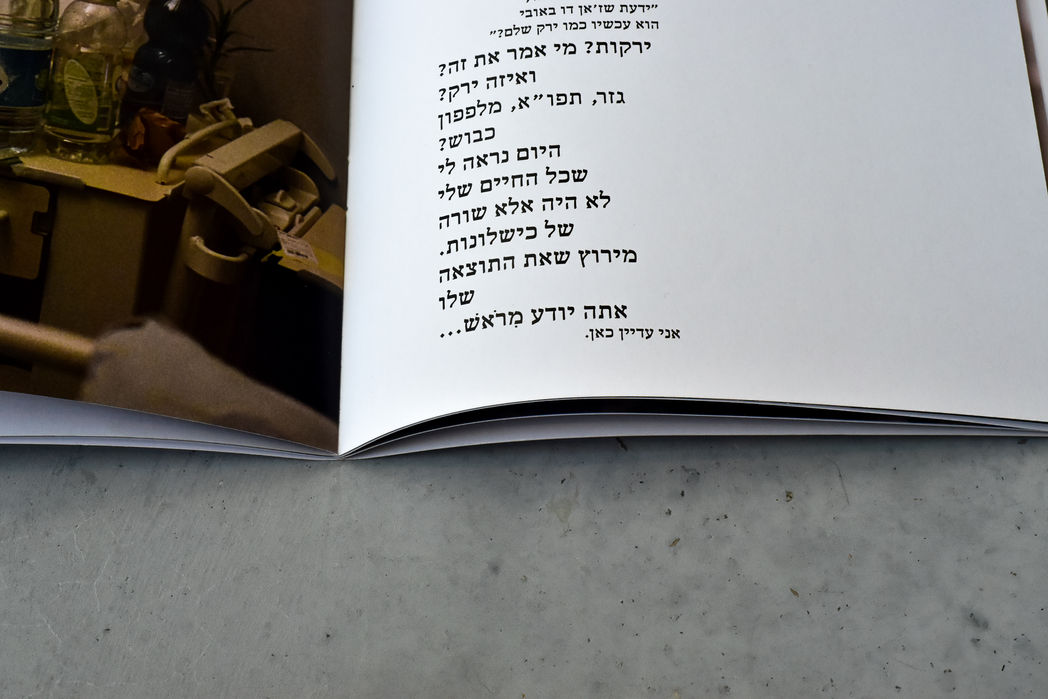 "ידעת שז'אן דו באובי
הוא עכשיו כמו ירק שלם?"
ירקות? מי אמר את זה?
ואיזה ירק?
גזר, תפו"א, מלפפון
כבוש?
היום נראה לי
שכל החיים שלי
לא היה אלא שורה
של כישלונות.
מירוץ שאת התוצאה
שלו
אתה יודע מֵרֹאשׁ...
אני עדיין כאן.